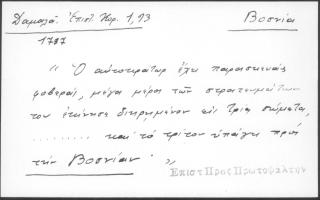 Δαμαλᾶ. Ἐπιστ. Κορ. 1, 93 Βοσνία
1787
« Ὁ αὐτοκράτωρ ἔχει παρασκευὰς
φοβεράς, μέγα μέρος τῶν στρατευμάτων
του ἐκίνησε διῃρημένον εἰς τρία σώματα,
......... καὶ τὸ τρίτον ὑπάγει πρὸς
τὴν Βοσνίαν. »
Επιστ Προς Πρωτοψαλτην